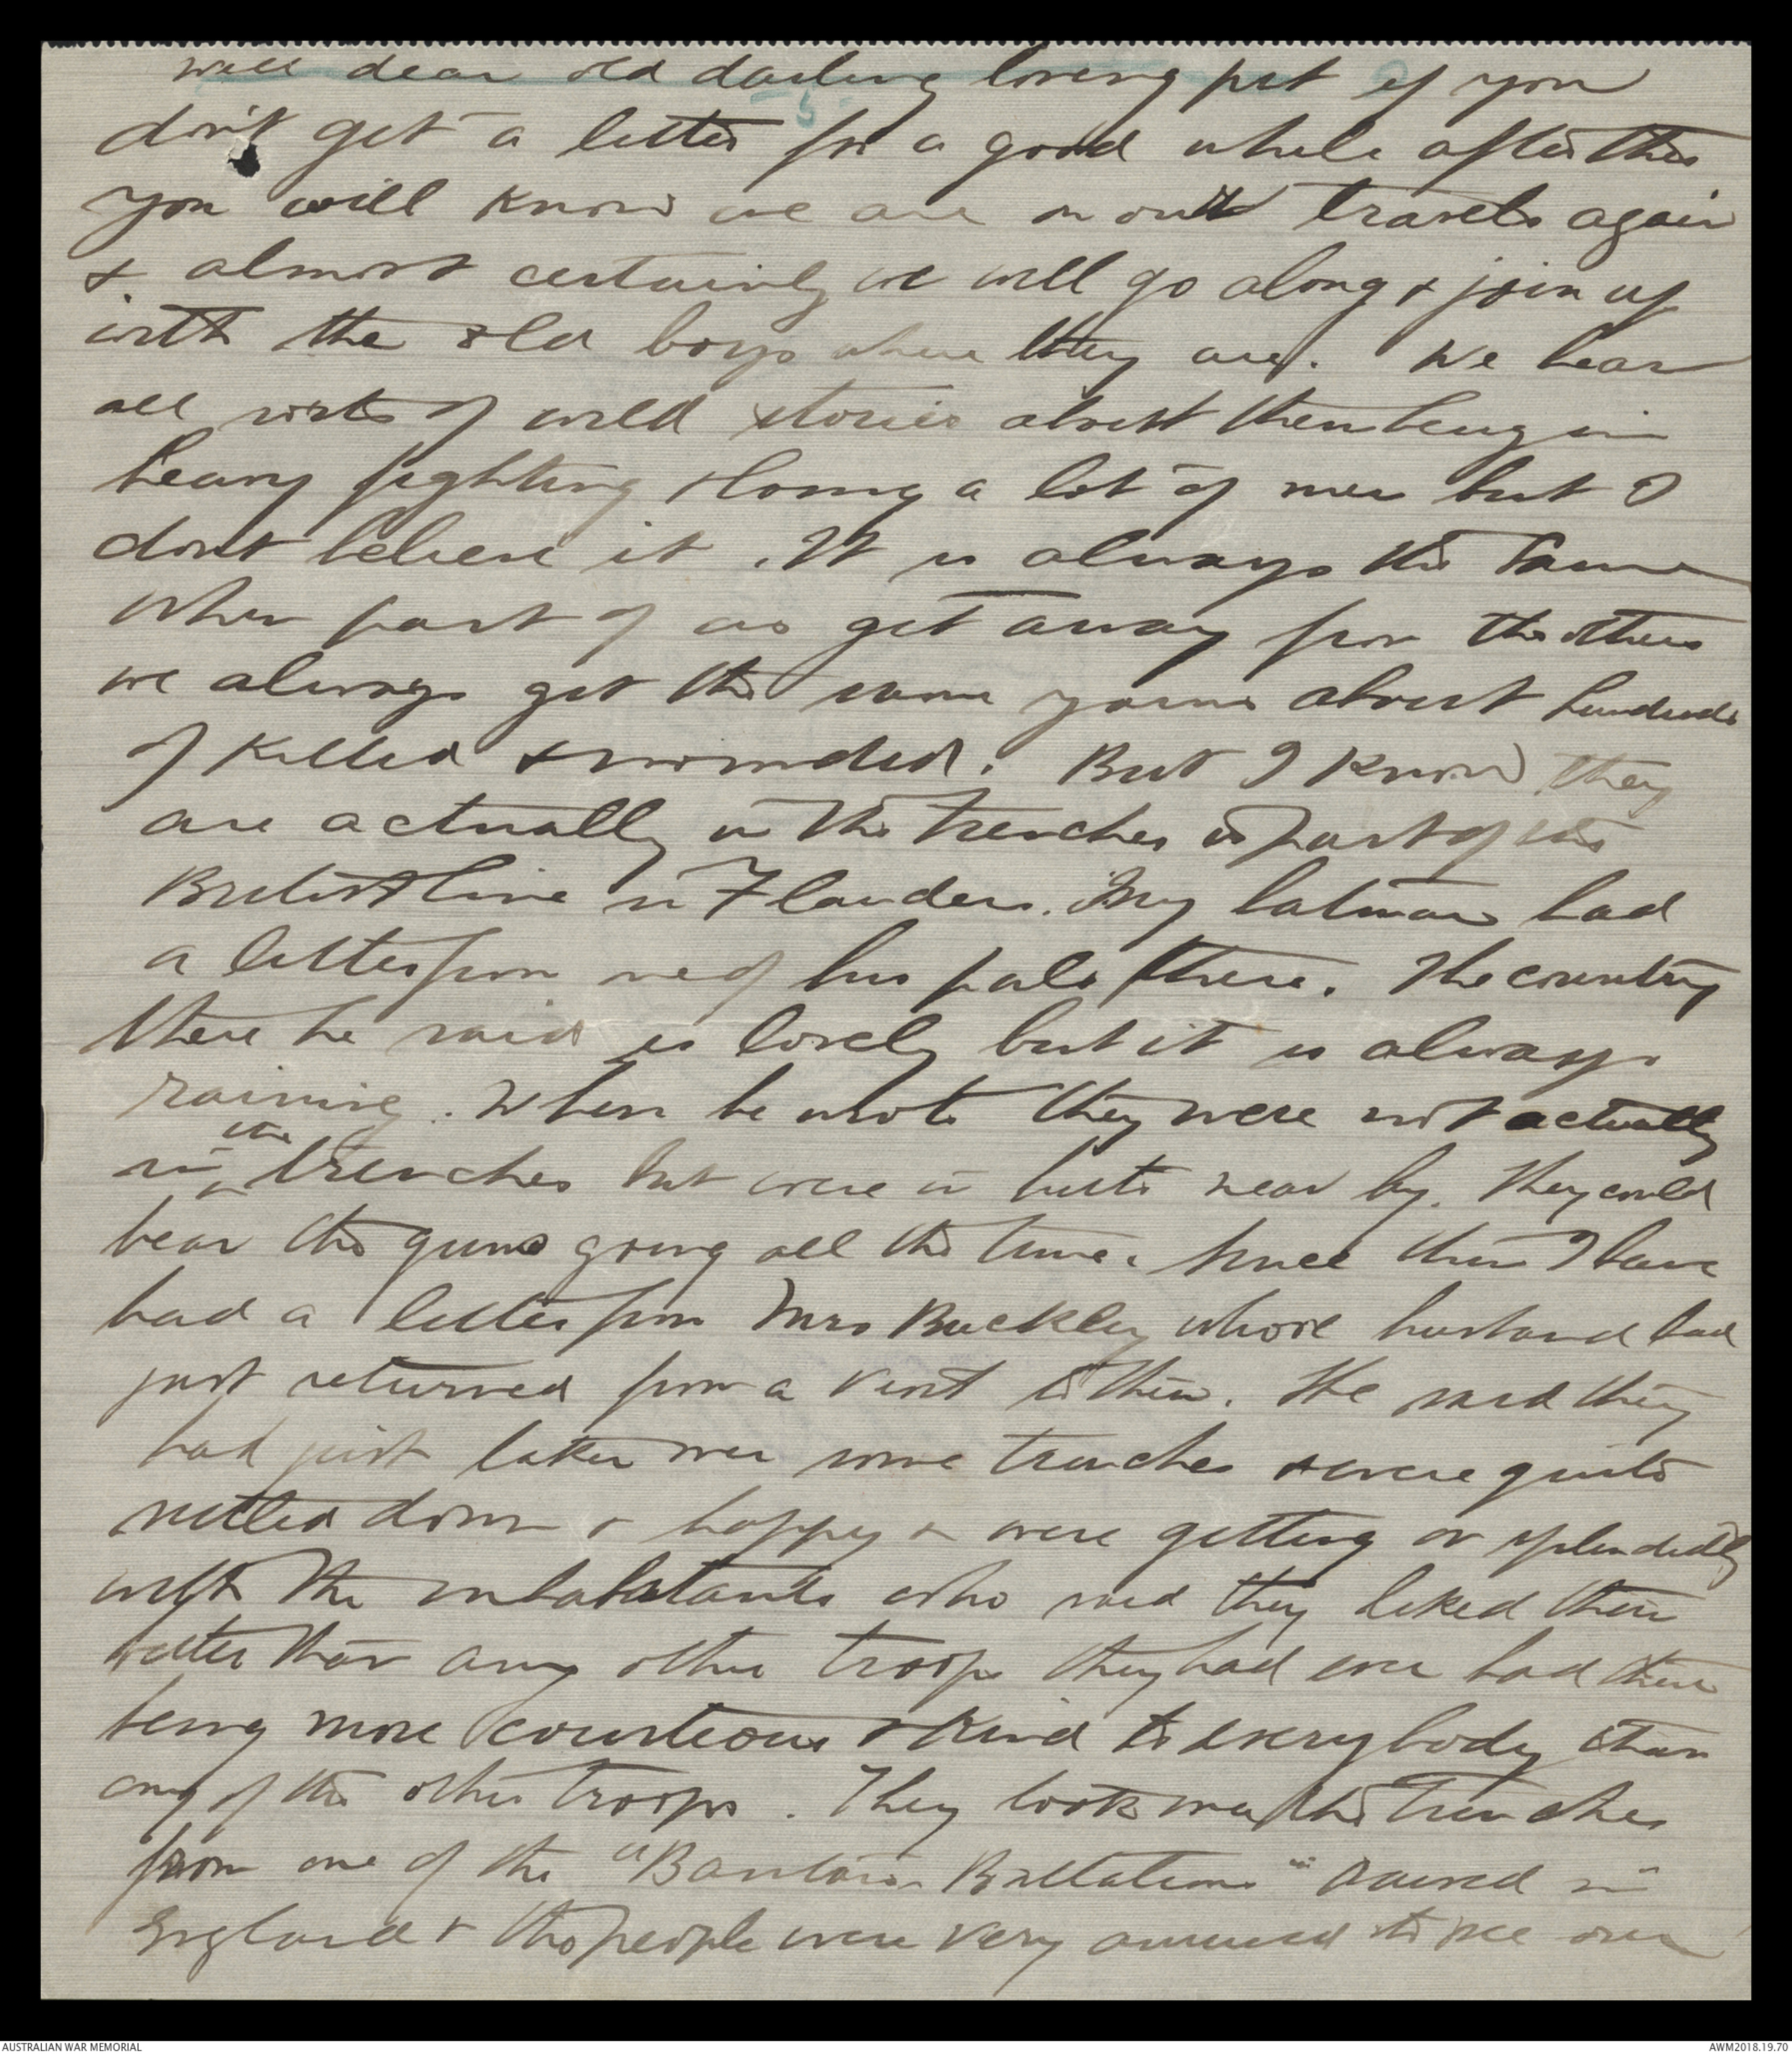 well dear old darling loving pet if you
5
don't get a letter for a good while after this
you will know we are on our travels again
& almost certainly we will go along & join up
with the old boys where they are. We hear
all sorts of wild stories about them being in
heavy fighting & losing a lot of men but I
dont believe it. It is always the same
when part of us get away from the others
we always get the same yarns about hundreds
of killed & wounded. But I know they
are actually in the trenches as part of the
British line in Flanders. My batman had
a letter from one of his pals there. The country
there he said is lovely but it is always
raining. When he wrote they were not actually
in the trenches but were in huts near by. They could
hear the guns going all the time. Since then I have
had a letter from Mrs Buckley whose husband had
just returned from a visit to them. He said they
had just taken over some trenches & were quite
settled down & happy & were getting on splendidly
with the inhabitants who said they liked them
better than any other troops they had ever had there
being more courteous & kind to everybody than
any of the other troops. They took over the trenches
from one of the "Bantam Battalions" raised in
England & the people were very amused to see our
AUSTRALIAN WAR MEMORIAL
AWM2018.19.70